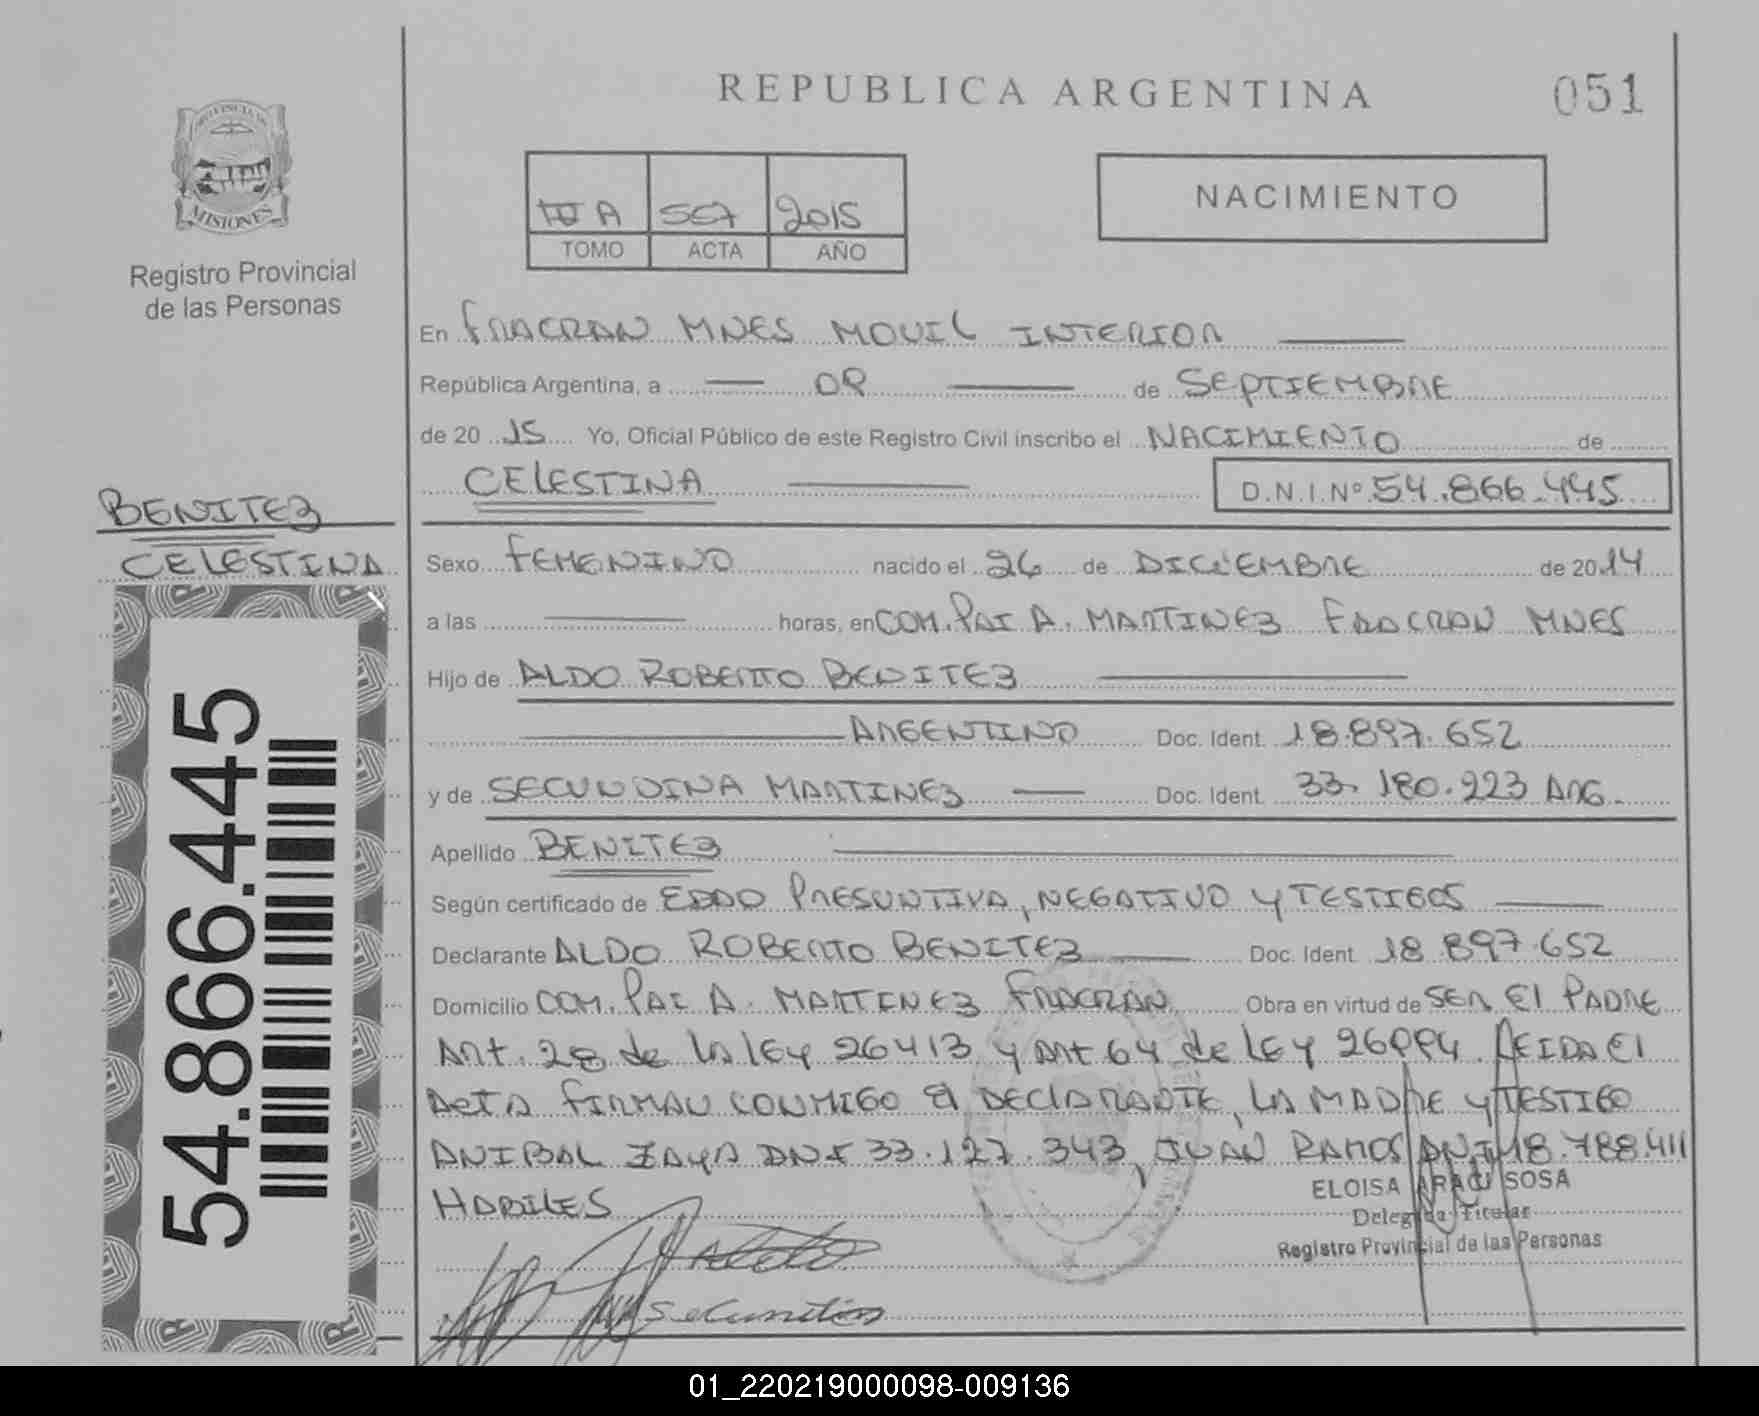 REPUBLICA ARGENTINA
051
PROVINCIA DE
MISIONES
Registro Provincial
de las Personas
A 2015
TOMO ACTA AÑO
NACIMIENTO
En FRACRAN MNES MOVIL INTERIOR
República Argentina, a 08 de SEPTIEMBRE
de 20 15 Yo, Oficial Público de este Registro Civil inscribo el NACIMIENTO de
CELESTINA D.N.I.Nº 54.866.445
BENITEZ
CELESTINA
Sexo FEMENINO nacido el 26 de DICIEMBRE de 2014
a las horas, en COM. PAI A. MARTINEZ FRACRAN MNES
Hijo de ALDO ROBERTO BENITEZ
ARGENTINO Doc. Ident. 18.897.652
y de SECUNDINA MARTINEZ Doc. Ident. 33.180.223 ARG.
Apellido BENITEZ
Según certificado de EDAD PRESUNTIVA, NEGATIVO Y TESTIGOS
Declarante ALDO ROBERTO BENITEZ Doc. Ident. 18.897.652
Domicilio COM. PAI A. MARTINEZ FRACRAN Obra en virtud de SER El PADRE
Art. 28 de la lEy 26413 y art 64 de lEy 26994. LEIDA El
ActA FIRMAN CONMIGO El DEClARANTE, LA MADRE y TESTIGO
ANIBAL ZAYA DNI 33.127.343, JUAN RAMOS DNI 18.788.411
HABILES
ELOISA ARACI SOSA
Delegada Titular
Registro Provincial de las Personas
Aldo
Secundina
54.866.445
01_220219000098-009136